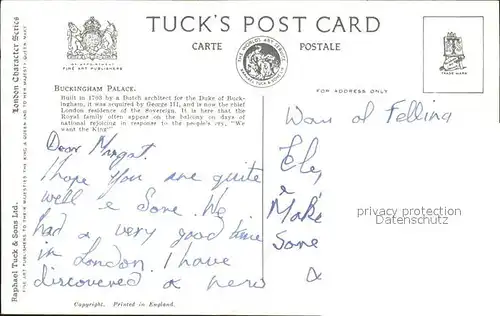 TUCK'S POST CARD
CARTE POSTALE
BY APPOINTMENT
FINE ART PUBLISHERS
THE WORLD'S ART SERVICE
RAPHAEL TUCK & SONS LTD
TRADE MARK
FOR ADDRESS ONLY
London Character Series
Raphael Tuck & Sons Ltd.
FINE ART PUBLISHERS TO THEIR MAJESTIES THE KING & QUEEN AND TO HER MAJESTY QUEEN MARY
BUCKINGHAM PALACE.
Built in 1703 by a Dutch architect for the Duke of Buck-
ingham, it was acquired by George III, and is now the chief
London residence of the Sovereign. It is here that the
Royal family often appear on the balcony on days of
national rejoicing in response to the people's cry, "We
want the King"
Dear Margat.
I hope you are quite
well & Sone. We
had a very good time
in London. I have
discovered a new
of Felling
&
Make
Sone
privacy protection
AnsichtskartenVersand.com
Copyright. Printed in England.